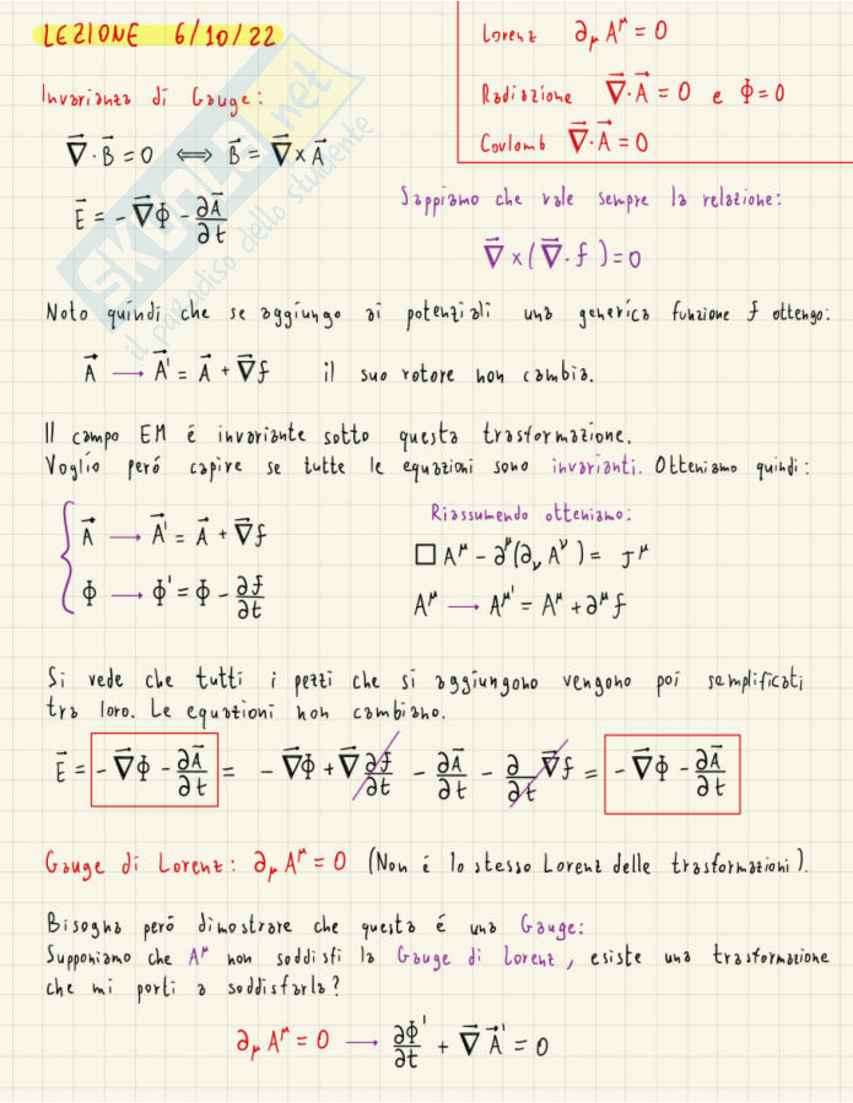 LEZIONE 6/10/22
Lorenz ∂_μ A^μ = 0
Radiazione ∇⃗·A⃗ = 0 e Φ = 0
Coulomb ∇⃗·A⃗ = 0
Invarianza di Gauge:
∇⃗·B⃗ = 0 ⟺ B⃗ = ∇⃗ x A⃗
E⃗ = - ∇⃗Φ - ∂A⃗/∂t
Sappiamo che vale sempre la relazione:
∇⃗ x (∇⃗· f ) = 0
Noto quindi che se aggiungo ai potenziali una generica funzione f ottengo:
A⃗ → A⃗' = A⃗ + ∇⃗f il suo rotore non cambia.
Il campo EM é invariante sotto questa trasformazione.
Voglio peró capire se tutte le equazioni sono invarianti. Otteniamo quindi:
A⃗ → A⃗' = A⃗ + ∇⃗f
Φ → Φ' = Φ - ∂f/∂t
Riassumendo otteniamo:
□ A^μ - ∂^μ(∂_ν A^ν) = J^μ
A^μ → A^μ' = A^μ + ∂^μ f
Si vede che tutti i pezzi che si aggiungono vengono poi semplificati
tra loro. Le equazioni non cambiano.
E⃗ = - ∇⃗Φ - ∂A⃗/∂t = - ∇⃗Φ + ∇⃗ ∂f/∂t - ∂A⃗/∂t - ∂/∂t ∇⃗f = - ∇⃗Φ - ∂A⃗/∂t
Gauge di Lorenz: ∂_μ A^μ = 0 (Non é lo stesso Lorenz delle trasformazioni).
Bisogna peró dimostrare che questa é una Gauge:
Supponiamo che A^μ non soddisfi la Gauge di Lorenz, esiste una trasformazione
che mi porti a soddisfarla?
∂_μ A^μ = 0 → ∂Φ'/∂t + ∇⃗ A⃗' = 0
SKUOLA.net
il paradiso dello studente